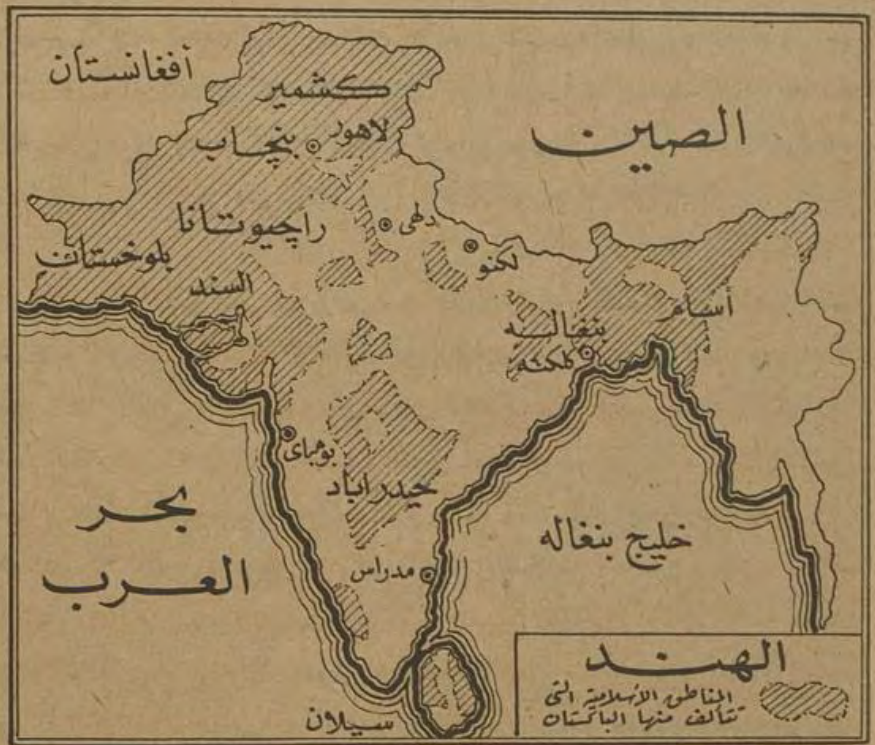 أفغانستان
كشمير
الصين
لاهور
بنچاب
راچيوتانا
دلهى
لكنو
بلوخستان
السند
أسام
بنغاله
كلكته
بومباى
حيدراباد
بحر
العرب
خليج بنغاله
مدراس
سيلان
الهند
المناطق الأسلامية التى
تتألف منها الباكستان